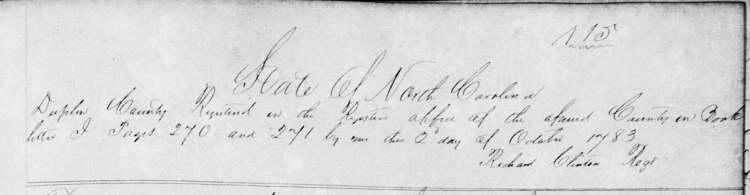 115
State of North Carolina
Duplin County Registered in the Registers office of the aforesd County in Book
letter I Pages 270 and 271 by me this 2d day of October 1783
Richard Clinton Regr